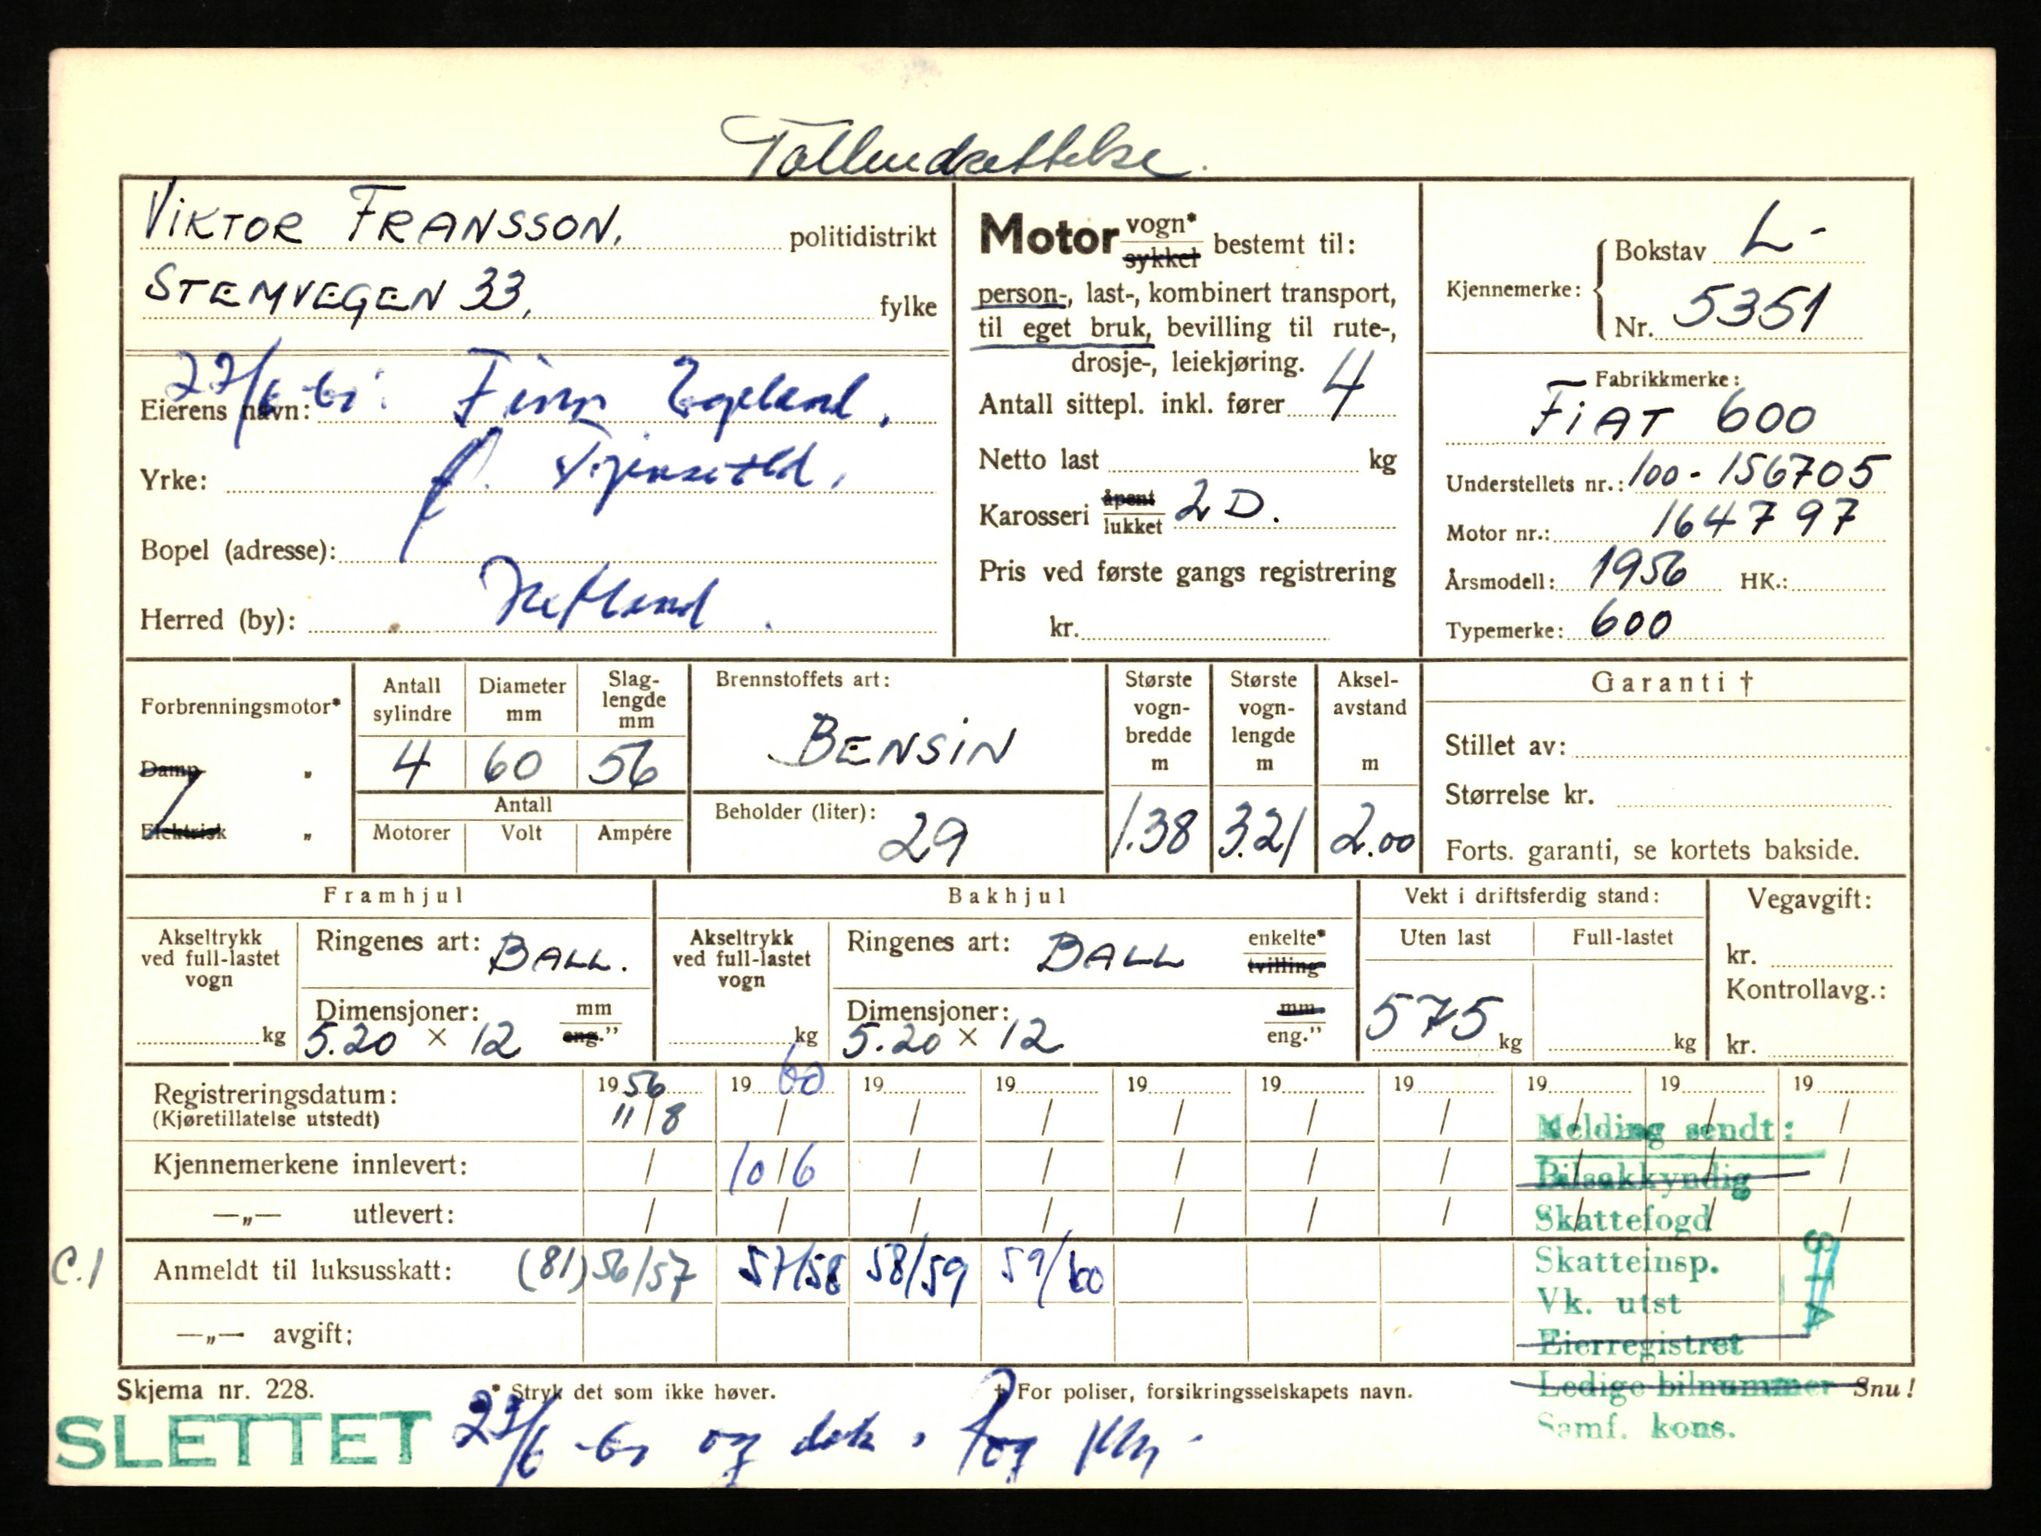 Tollendrettelse.
VIKTOR FRANSSON, politidistrikt
STEMVEGEN 33, fylke
27/6 Finn Egeland,
Eierens navn:
Yrke:
Bopel (adresse):
Herred (by): Hetland
Motor vogn* sykkel bestemt til:
person-, last-, kombinert transport,
til eget bruk, bevilling til rute-,
drosje-, leiekjøring.
Antall sittepl. inkl. fører 4
Netto last kg
Karosseri åpent lukket 2 D.
Pris ved første gangs registrering
kr.
Kjennemerke:
Bokstav L-
Nr. 5351
Fabrikkmerke:
FIAT 600
Understellets nr.: 100-156705
Motor nr.: 164797
Årsmodell: 1956 HK.:
Typemerke: 600
Forbrenningsmotor*
Damp „
Elektrisk „
Antall sylindre
Diameter mm
Slag-
lengde
mm
4 60 56
Antall
Motorer Volt Ampére
Brennstoffets art:
BENSIN
Beholder (liter):
29
Største
vogn-
bredde
m
1.38
Største
vogn-
lengde
m
3.21
Aksel-
avstand
m
2.00
Garanti †
Stillet av:
Størrelse kr.
Forts. garanti, se kortets bakside.
Framhjul
Akseltrykk
ved full-lastet
vogn
kg
Ringenes art: BALL.
Dimensjoner: mm
5.20 × 12 eng."
Bakhjul
Akseltrykk
ved full-lastet
vogn
kg
Ringenes art: BALL enkelte* tvilling
Dimensjoner: mm
5.20 × 12 eng."
Vekt i driftsferdig stand:
Uten last Full-lastet
575 kg kg
Vegavgift:
kr.
Kontrollavg.:
kr.
Registreringsdatum: 1956 1960 19 19 19 19 19 19 19 19
(Kjøretillatelse utstedt) 11/8 / / / / / / / / /
Kjennemerkene innlevert: / 10/6 / / / / / / / /
—„— utlevert: / / / / / / / / / /
C.1 Anmeldt til luksusskatt: (81) 56/57 57/58 58/59 59/60
—„— avgift:
Melding sendt:
Bilsakkyndig
Skattefogd
Skatteinsp.
Vk. utst
Eierregistret
Ledige bilnummer
Samf. kons.
Skjema nr. 228. * Stryk det som ikke høver. † For poliser, forsikringsselskapets navn. Snu!
SLETTET 23/6 og